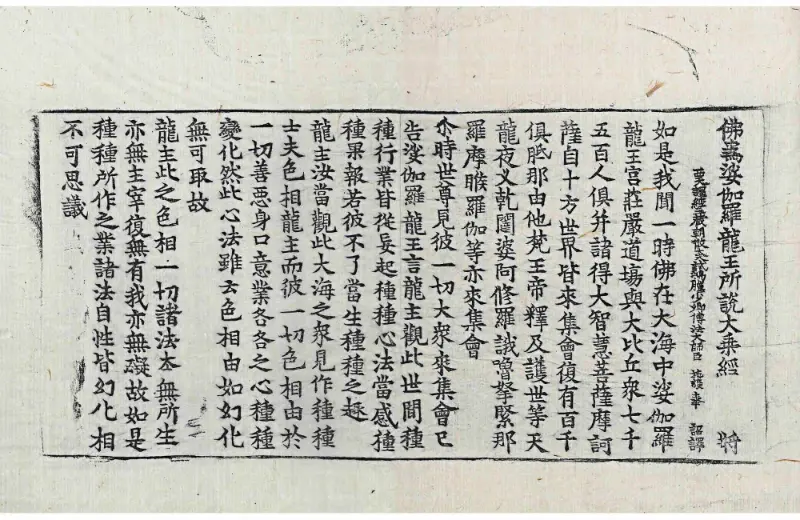 佛爲娑伽羅龍王所說大乘經 將
西天譯經三藏朝散大夫試鴻臚少卿傳法大師臣施護奉 詔譯
如是我聞一時佛在大海中娑伽羅
龍王宮莊嚴道場與大比丘衆七千
五百人俱幷諸得大智慧菩薩摩訶
薩自十方世界皆來集會復有百千
俱胝那由他梵王帝釋及護世等天
龍夜叉乹闥婆阿修羅誐嚕拏緊那
羅摩睺羅伽等亦來集會
尒時世尊見彼一切大衆來集會已
告娑伽羅龍王言龍主觀此世間種
種行業皆從妄起種種心法當感種
種果報若彼不了當生種種之趣
龍主汝當觀此大海之衆見作種種
士夫色相龍主而彼一切色相由於
一切善惡身口意業各各之心種種
變化然此心法雖云色相由如幻化
無可取故
龍主此之色相一切諸法本無所生
亦無主宰復無有我亦無礙故如是
種種所作之業諸法自性皆幻化相
不可思議